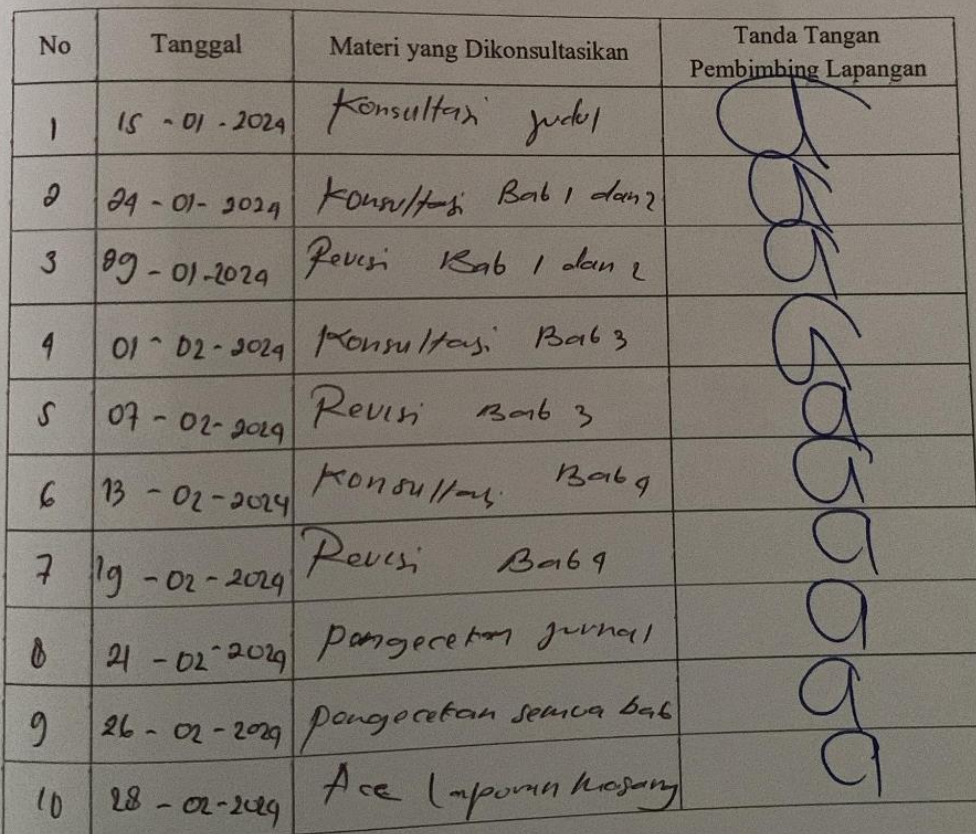 No Tanggal Materi yang Dikonsultasikan Tanda Tangan
Pembimbing Lapangan
1 15 - 01 - 2024 Konsultasi judul
2 24 - 01 - 2024 Konsultasi Bab 1 dan 2
3 - 01 - 2024 Revisi Bab 1 dan 2
4 01 - 02 - 2024 Konsultasi Bab 3
5 07 - 02 - 2024 Revisi Bab 3
6 13 - 02 - 2024 Konsultasi Bab 4
7 19 - 02 - 2024 Revisi Bab 4
8 21 - 02 - 2024 Pengecekan jurnal
9 26 - 02 - 2024 Pengecekan semua bab
10 28 - 02 - 2024 Acc Laporan Magang